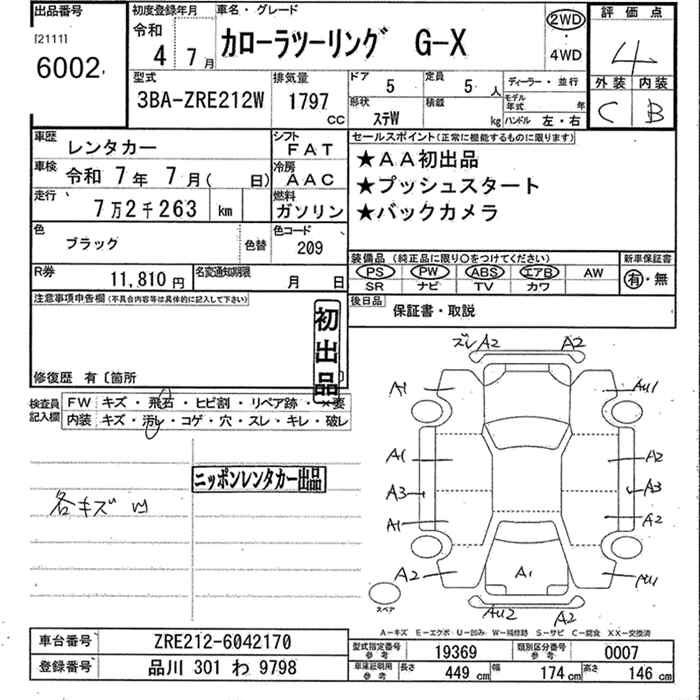 出品番号
[2111]
6002
初度登録年月
令和
4 7月
車名・グレード
カローラツーリング G-X
2WD
・
4WD
評価点
4
外装 内装
C B
型式
3BA-ZRE212W
排気量
1797 CC
ドア 5
定員 5 人
形状 ステW
積載 kg
ディーラー・並行
モデル年式 年
ハンドル 左・右
車歴 レンタカー
シフト FAT
車検 令和 7年 7月( 日)
冷房 AAC
走行 7万2千263 km
燃料 ガソリン
色 ブラック 色替
色コード 209
R券 11,810円
名変通知期限 月 日
セールスポイント(正常に機能するものに限ります)
★AA初出品
★プッシュスタート
★バックカメラ
装備品 (純正品に限り○をつけてください)
PS PW ABS エアB AW
SR ナビ TV カワ
新車保証書
有・無
後日品 保証書・取説
注意事項申告欄(不具合内容等は具体的に記入して下さい)
初出品
修復歴 有〔箇所
検査員記入欄
FW キズ・飛石・ヒビ割・リペア跡・×要
内装 キズ・汚れ・コゲ・穴・スレ・キレ・破レ
ニッポンレンタカー出品
各キズ 凹
ズレ A2 A2
A1 AU1
A1 A2
A3 A3
A1 A2
A2 A1 AU1
AU2 A2
スペア
A－キズ E－エクボ U－凹み W－補修跡 S－サビ C－腐食 XX－交換済
車台番号 ZRE212-6042170
登録番号 品川 301 わ 9798
型式指定番号 参考 19369
類別区分番号 参考 0007
車庫証明用 参考 長さ 449 cm 幅 174 cm 高さ 146 cm